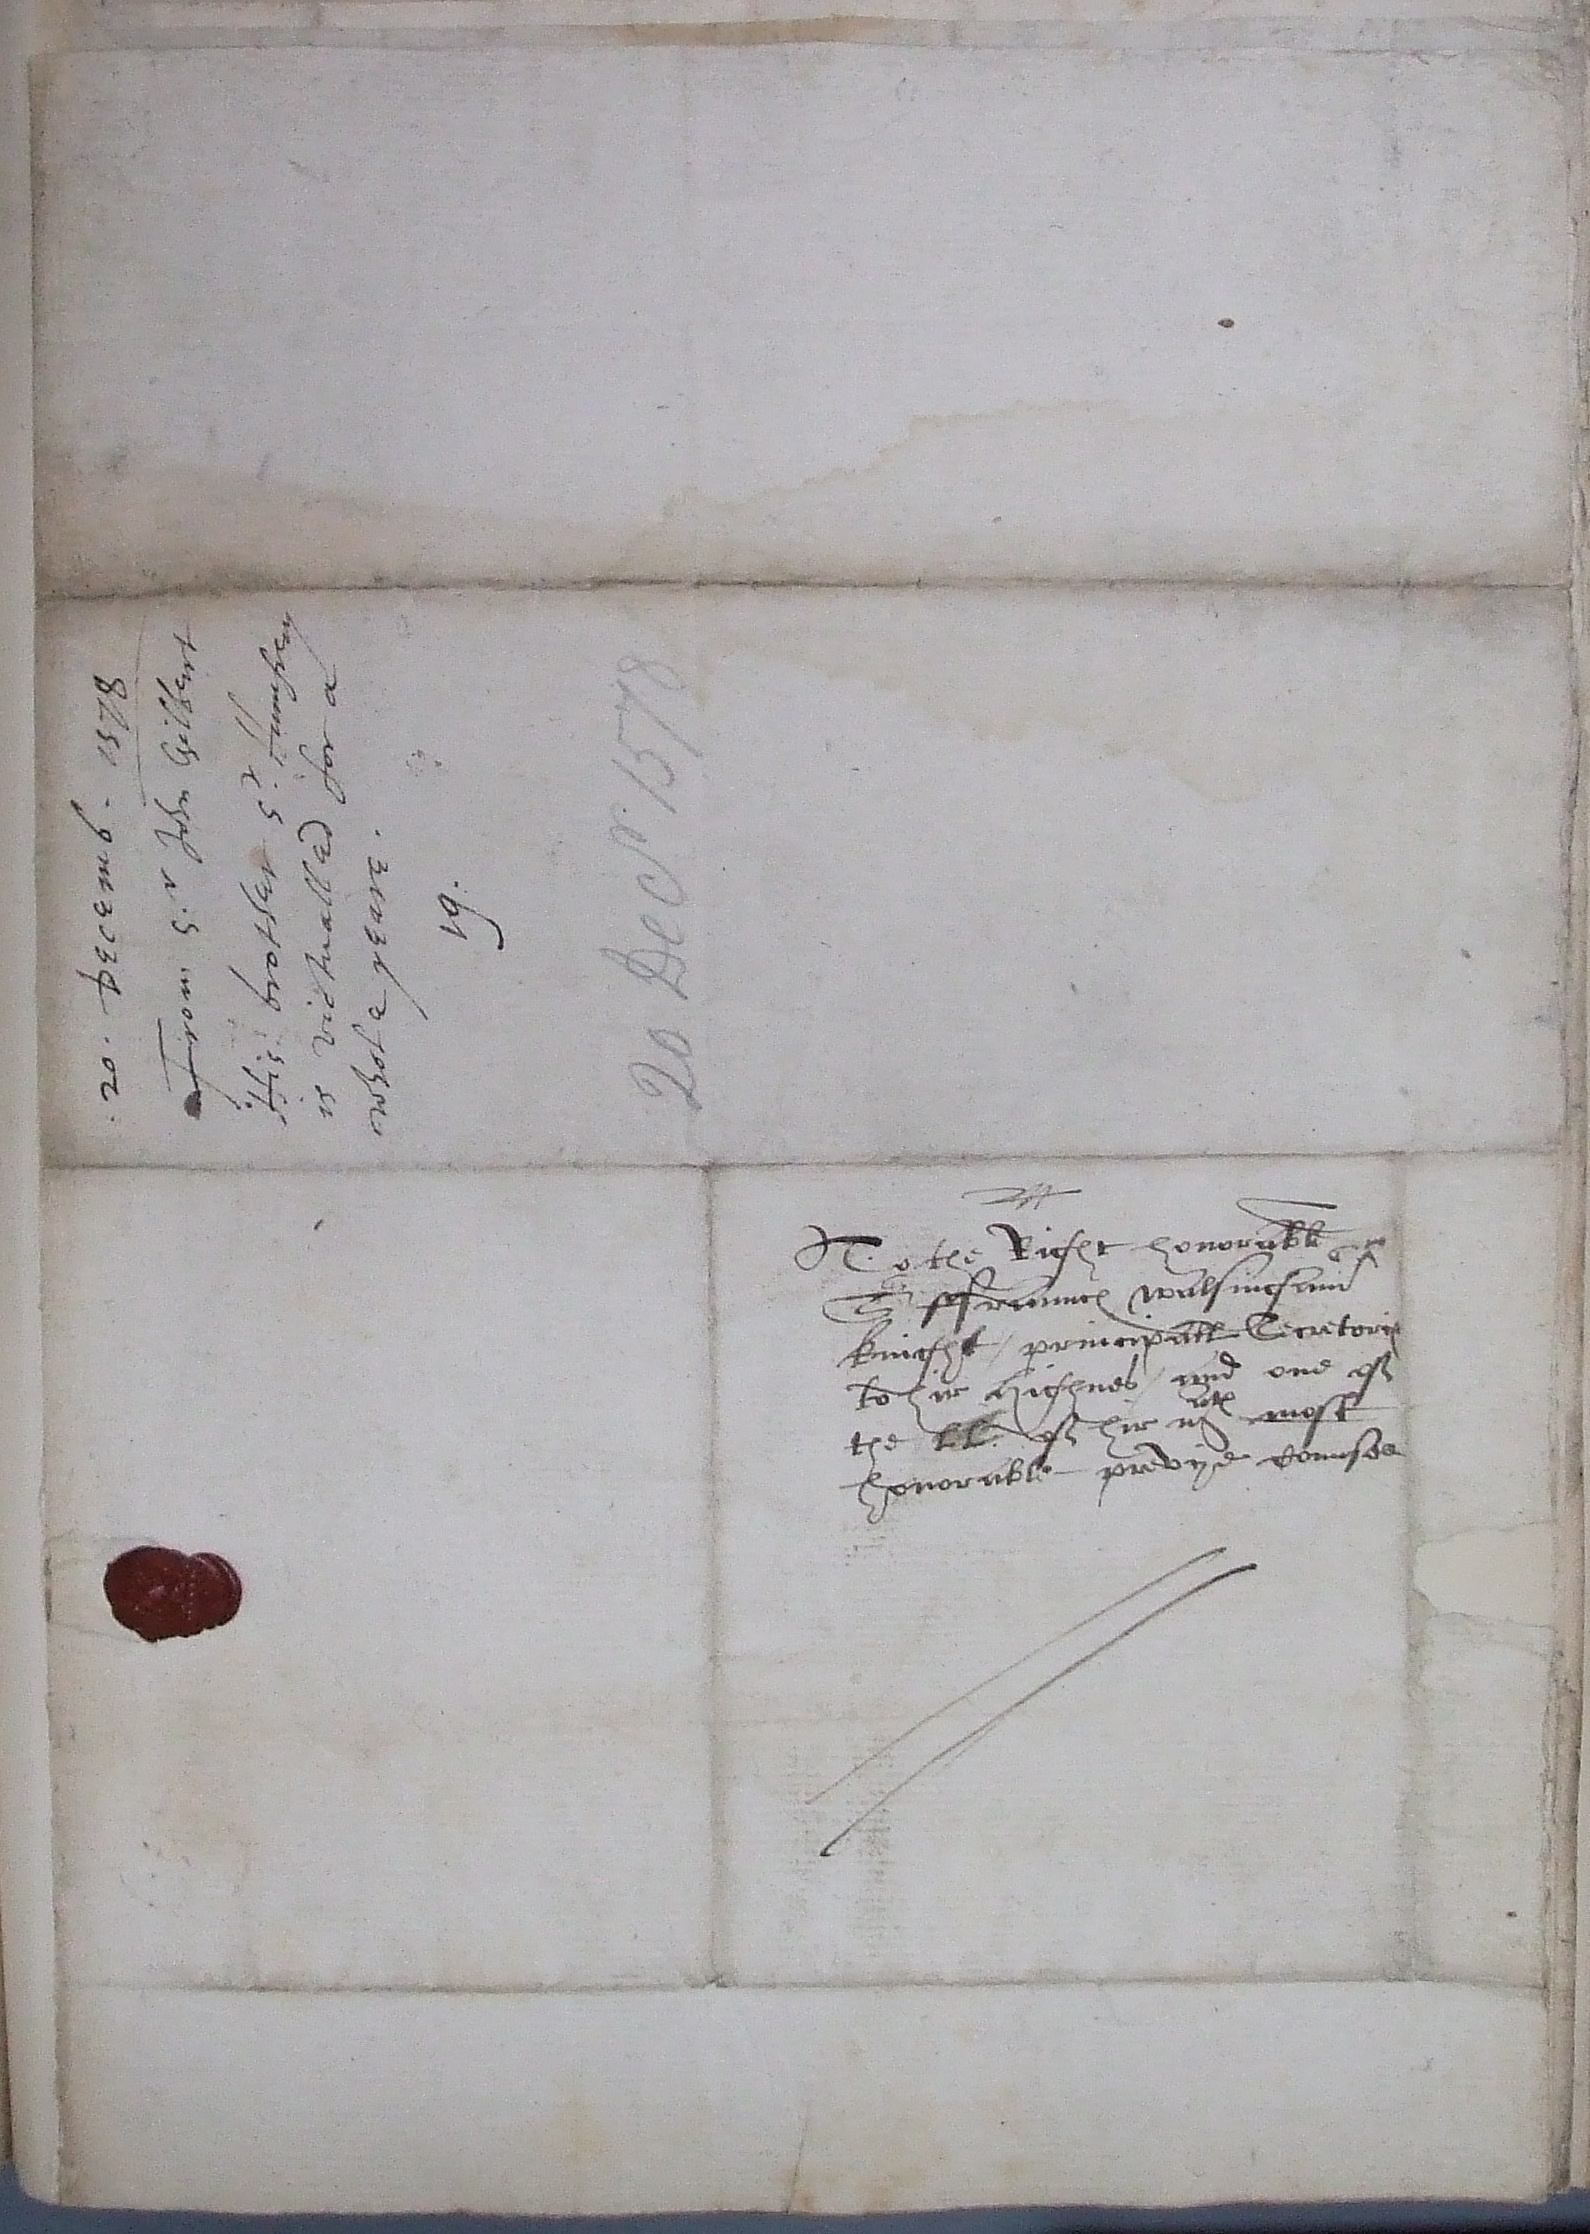 .20. Decemb. 1578
From S.r John Gilbert
His brother S.r Humfrey
is victualled for a
whole yeare.
19.
20 Decr. 1578
To the Right honorable Sr
ffrauncs Walsingham
knight / principall Secretorie
to hir highnes / and one of
the LL. of hir mats most
honorable prevye counsale